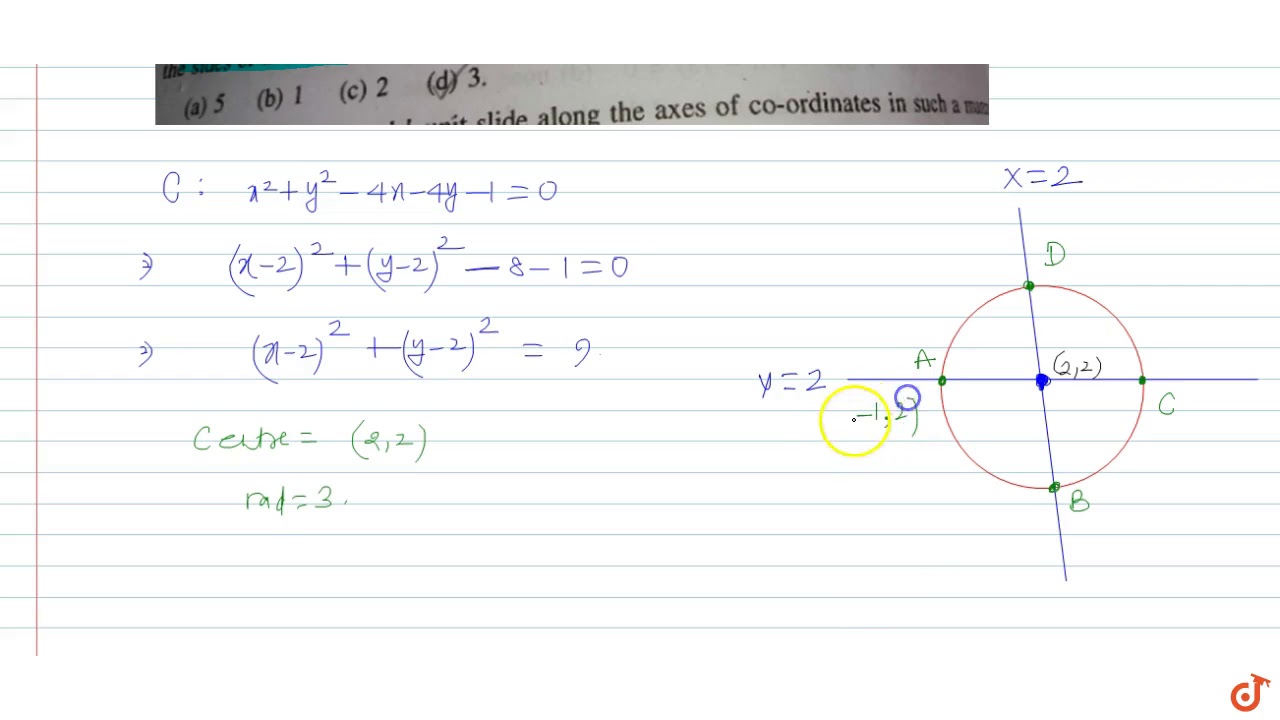 the sides
(a) 5 (b) 1 (c) 2 (d) 3.
unit slide along the axes of co-ordinates in such a
C : x² + y² - 4x - 4y - 1 = 0
⇒ (x-2)² + (y-2)² - 8 - 1 = 0
⇒ (x-2)² + (y-2)² = 9.
Centre = (2,2)
rad = 3.
x = 2
D
A
(2,2)
y = 2
-1, 2)
C
B